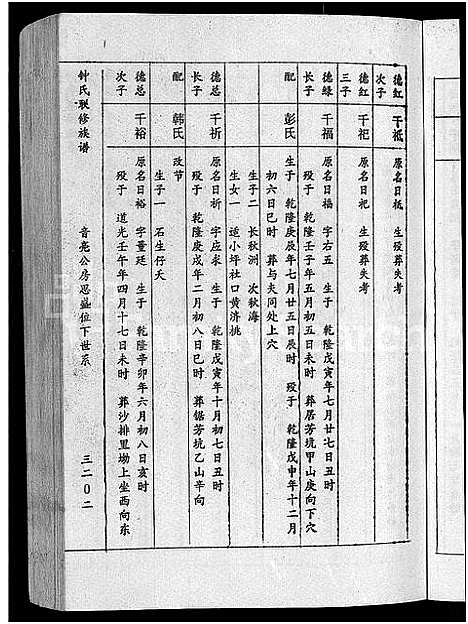 德红次子 干祗 原名日祗 生殁葬失考
德红三子 干祀 原名日祀 生殁葬失考
德绿长子 干福 原名日福 字右五 生于 乾隆戊寅年七月廿七日丑时
殁于 乾隆壬子年五月初五日未时 葬居芳坑甲山庚向下穴
配 彭氏 生于 乾隆庚辰年七月廿五日辰时 殁于 乾隆戊申年十二月
初六日巳时 葬与夫同处上穴
生子二 长秋洲 次秋海
生女一 适小坪社口黄济桃
德总长子 干祈 原名日祈 字应求 生于 乾隆戊寅年十月初七日丑时
殁于 乾隆庚戌年二月初八日巳时 葬锯芳坑乙山辛向
配 韩氏 改节
生子一 石生仔夭
德总次子 干裕 原名日裕 字董廷 生于 乾隆辛卯年六月初八日亥时
殁于 道光壬午年四月十七日未时 葬沙排里坳上坐西向东
钟氏联修族谱 音亮公房思盛位下世系 三二〇二